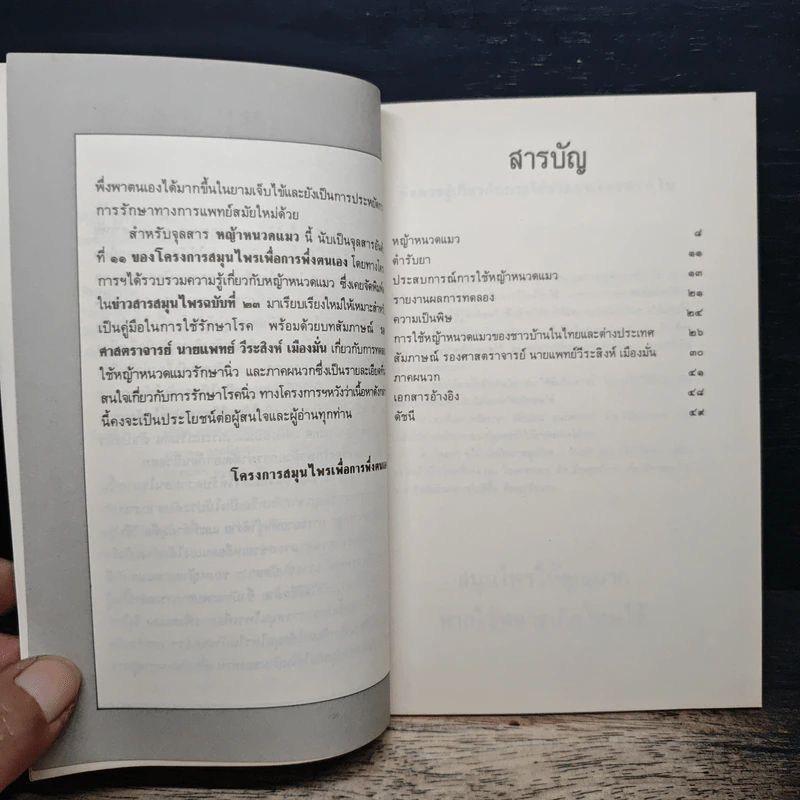 พึ่งพาตนเองได้มากขึ้นในยามเจ็บไข้และยังเป็นการประหยัด
การรักษาทางการแพทย์สมัยใหม่ด้วย
สำหรับจุลสาร หญ้าหนวดแมว นี้ นับเป็นจุลสาร
ที่ ๑๑ ของโครงการสมุนไพรเพื่อการพึ่งตนเอง โดยทาง
การฯได้รวบรวมความรู้เกี่ยวกับหญ้าหนวดแมว ซึ่งเคย
ในข่าวสารสมุนไพรฉบับที่ ๒๓ มาเรียบเรียงใหม่ให้เหมาะ
เป็นคู่มือในการใช้รักษาโรค พร้อมด้วยบทสัมภาษณ์
ศาสตราจารย์ นายแพทย์ วีระสิงห์ เมืองมั่น เกี่ยวกับการ
ใช้หญ้าหนวดแมวรักษานิ่ว และภาคผนวกซึ่งเป็นรายละเอียด
สนใจเกี่ยวกับการรักษาโรคนิ่ว ทางโครงการฯหวังว่าเนื้อหา
นี้คงจะเป็นประโยชน์ต่อผู้สนใจและผู้อ่านทุกท่าน
โครงการสมุนไพรเพื่อการพึ่งตนเ
สารบัญ
หญ้าหนวดแมว ๘
ตำรับยา ๑๑
ประสบการณ์การใช้หญ้าหนวดแมว ๑๓
รายงานผลการทดลอง ๒๑
ความเป็นพิษ ๒๔
การใช้หญ้าหนวดแมวของชาวบ้านในไทยและต่างประเทศ ๒๖
สัมภาษณ์ รองศาสตราจารย์ นายแพทย์วีระสิงห์ เมืองมั่น ๓๐
ภาคผนวก ๔๑
เอกสารอ้างอิง ๔๘
ดัชนี ๔๙